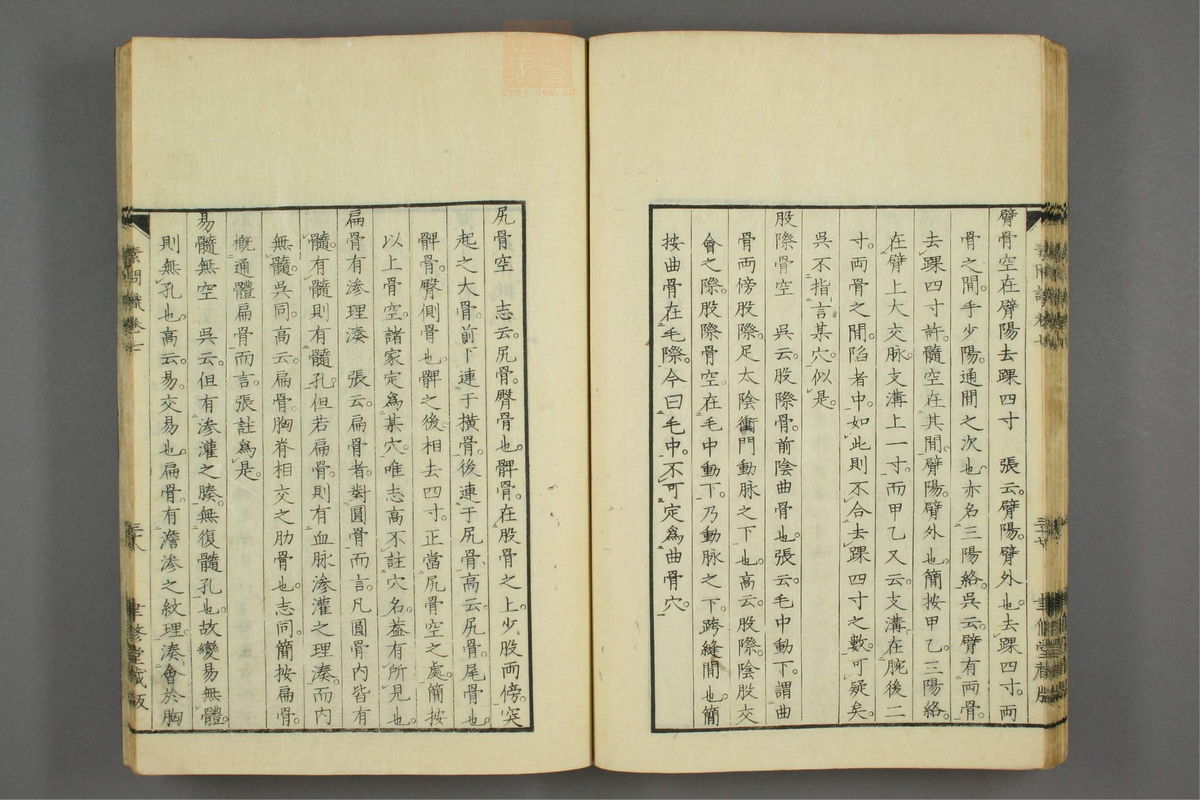 臂骨空在臂陽去踝四寸　張云。臂陽。臂外也。去踝四寸。兩
骨之間。手少陽。通間之次也。亦名三陽絡。吳云。臂有兩骨。
去踝四寸許。髓空在其間。臂陽。臂外也。簡按甲乙。三陽絡。
在臂上大交脉。支溝上一寸。而甲乙又云。支溝。在腕後二
寸。兩骨之間。陷者中。如此則不合去踝四寸之數。可疑矣。
吳不指言某穴。似是。
股際骨空　吳云。股際骨。前陰曲骨也。張云。毛中動下。謂曲
骨兩傍股際。足太陰衝門動脉之下也。高云。股際。陰股交
會之際。股際骨空。在毛中動下。乃動脉之下。跨縫間也。簡
按曲骨在毛際。今曰毛中。不可定爲曲骨穴。
尻骨空　志云。尻骨。臀骨也。髀骨。在股骨之上。少股兩傍。突
起之大骨。前下連于橫骨。後連于尻骨。高云。尻骨。尾骨也。
髀骨。臀側骨也。髀之後。相去四寸。正當尻骨空之處。簡按
以上骨空。諸家定爲某穴。唯志高不註穴名。蓋有所見也。
扁骨有滲理湊　張云。扁骨者。對圓骨而言。凡圓骨內皆有
髓。有髓則有髓孔。但若扁骨。則有血脉滲灌之理湊。而內
無髓。吳同。高云。扁骨。胸脊相交之肋骨也。志同。簡按扁骨。
槪通體扁骨而言。張註爲是。
易髓無空　吳云。但有滲灌之腠。無復髓孔也。故變易無髓。
則無孔也。高云。易。交易也。扁骨。有澹滲之紋理。湊會於胸
素問識卷七
三十八
聿修堂藏板